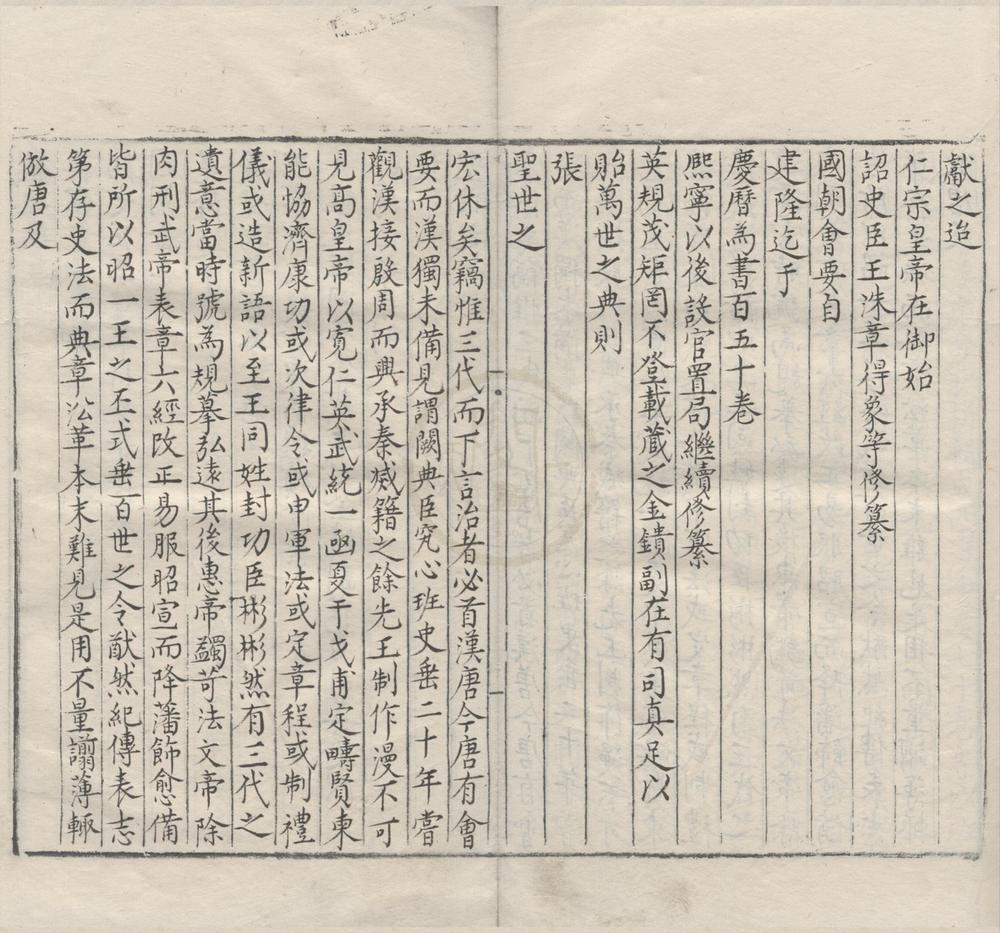 獻之迨
仁宗皇帝在御始
詔史臣王洙章得象等修纂
國朝會要自
建隆迄于
慶曆為書百五十卷
熙寧以後設官置局繼續修纂
英規茂矩罔不登載藏之金鐀副在有司真足以
貽萬世之典則
張
聖世之
宏休矣竊惟三代而下言治者必首漢唐今唐有會
要而漢獨未備見謂闕典臣究心班史垂二十年嘗
觀漢接殷周而興承秦滅籍之餘先王制作漫不可
見高皇帝以寬仁英武統一函夏干戈甫定疇賢東
能協濟康功或次律令或申軍法或定章程或制禮
儀或造新語以至王同姓封功臣彬彬然有三代之
遺意當時號為規摹弘遠其後惠帝蠲苛法文帝除
肉刑武帝表章六經改正易服昭宣而降藩飾愈備
皆所以昭一王之丕式垂百世之令猷然紀傳表志
第存史法而典章㳂革本末難見是用不量謭薄輒
倣唐及